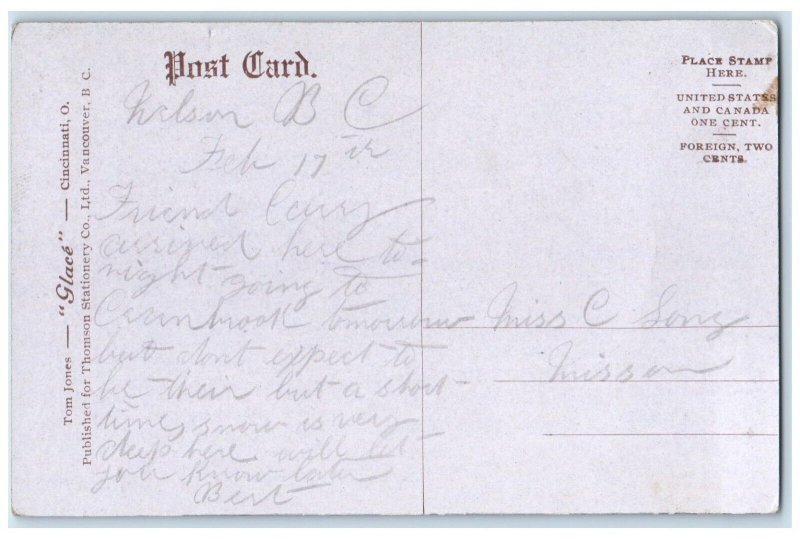 Post Card.
PLACE STAMP
HERE.
UNITED STATES
AND CANADA
ONE CENT.
FOREIGN, TWO
CENTS.
Tom Jones — "Glacé" — Cincinnati, O.
Published for Thomson Stationery Co., Ltd., Vancouver, B C.
Nelson B C
Feb 17th
Friend
arrived here to-
night going to
Cranbrook tomorrow
but dont expect to
be their but a short
time, snow is very
deep here will let
you know later
Bert
Miss C
Mission